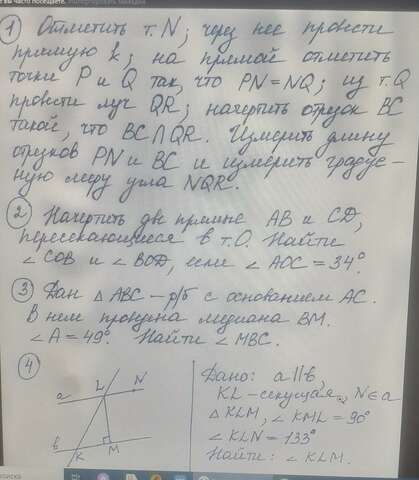 ① Отметить т. N; через нее провести
прямую k; на прямой отметить
точки P и Q так, что PN = NQ; из т. Q
провести луч QR; начертить отрезок BC
такой, что BC ∩ QR. Измерить длину
отрезков PN и BC и измерить градус-
ную меру угла NQR.
② Начертить две прямые AB и CD,
пересекающиеся в т. O. Найти
∠COB и ∠BOD, если ∠AOC = 34°.
③ Дан △ABC – р/б с основанием AC.
В нем проведена медиана BM.
∠A = 49°. Найти ∠MBC.
④
L N
a
b
K M
Дано: a ∥ b,
KL – секущая, N ∈ a
△KLM, ∠KML = 90°
∠KLN = 133°
Найти: ∠KLM.